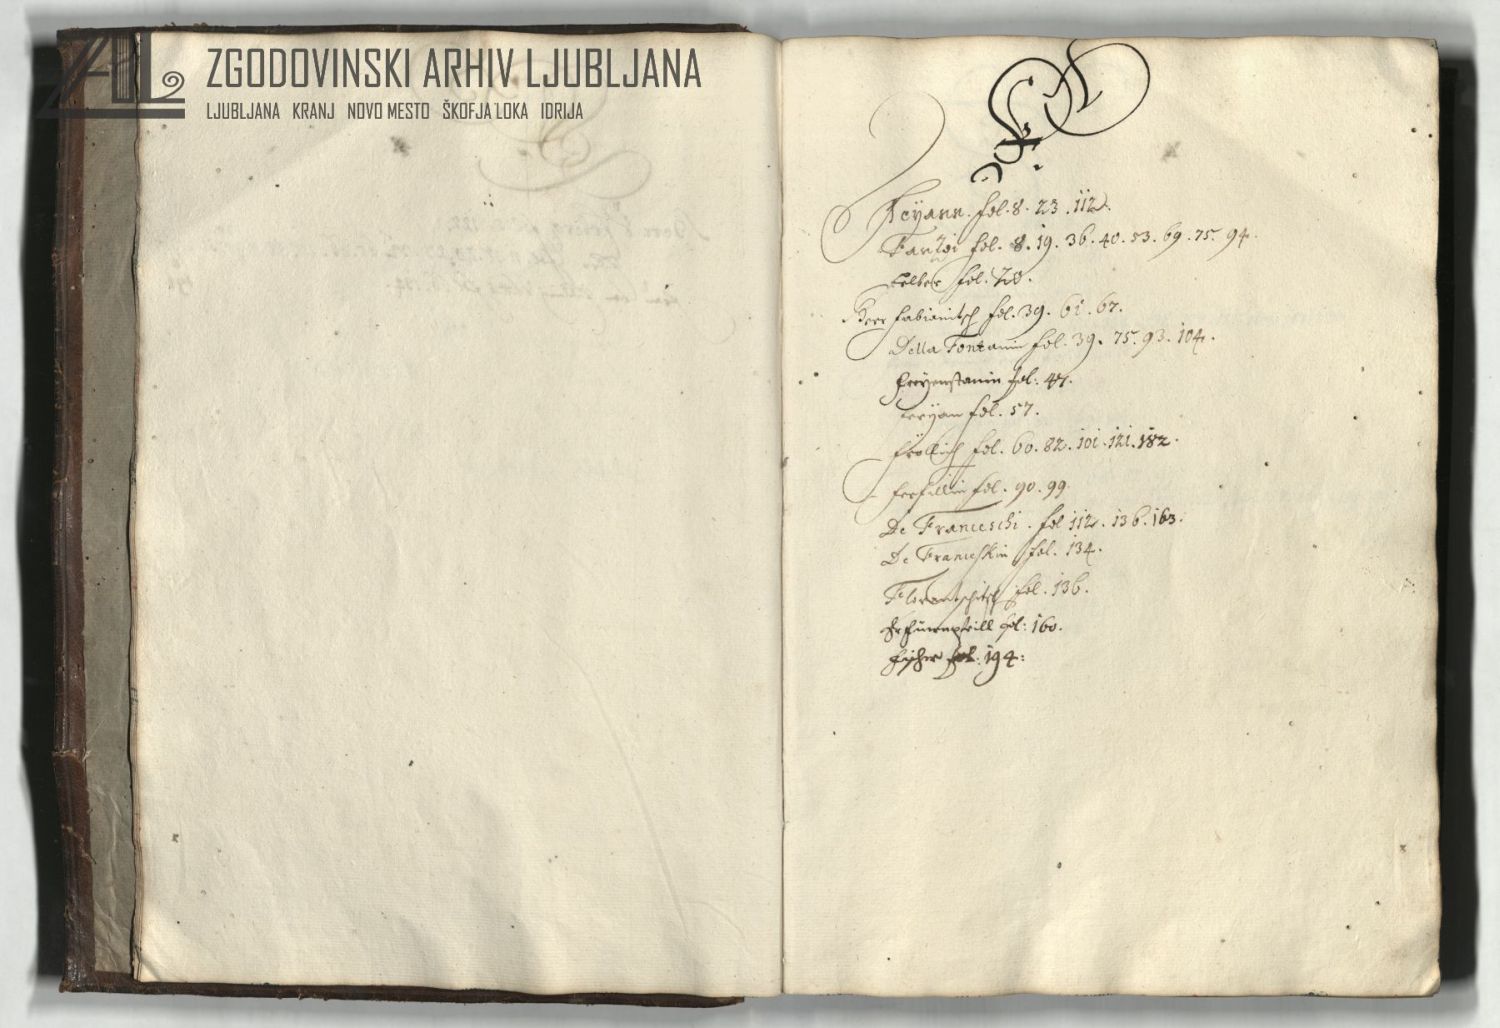 ZGODOVINSKI ARHIV LJUBLJANA
LJUBLJANA KRANJ NOVO MESTO ŠKOFJA LOKA IDRIJA
F
fol. 8. 23. 112.
fol. 8. 19. 36. 40. 53. 69. 75. 94.
felber fol.
Herr fabianitsch fol. 39. 61. 67.
Della Fontanin fol. 39. 75. 93. 104.
freyenstanin fol. 47.
feryan fol. 57.
frölich fol. 60. 82. 101. 121. 182.
fol. 90. 99.
De Franceschi. fol 112. 136. 163.
De Franceskin fol. 134.
Florentschitsch fol. 136.
fol: 160.
fischer fol: 194: